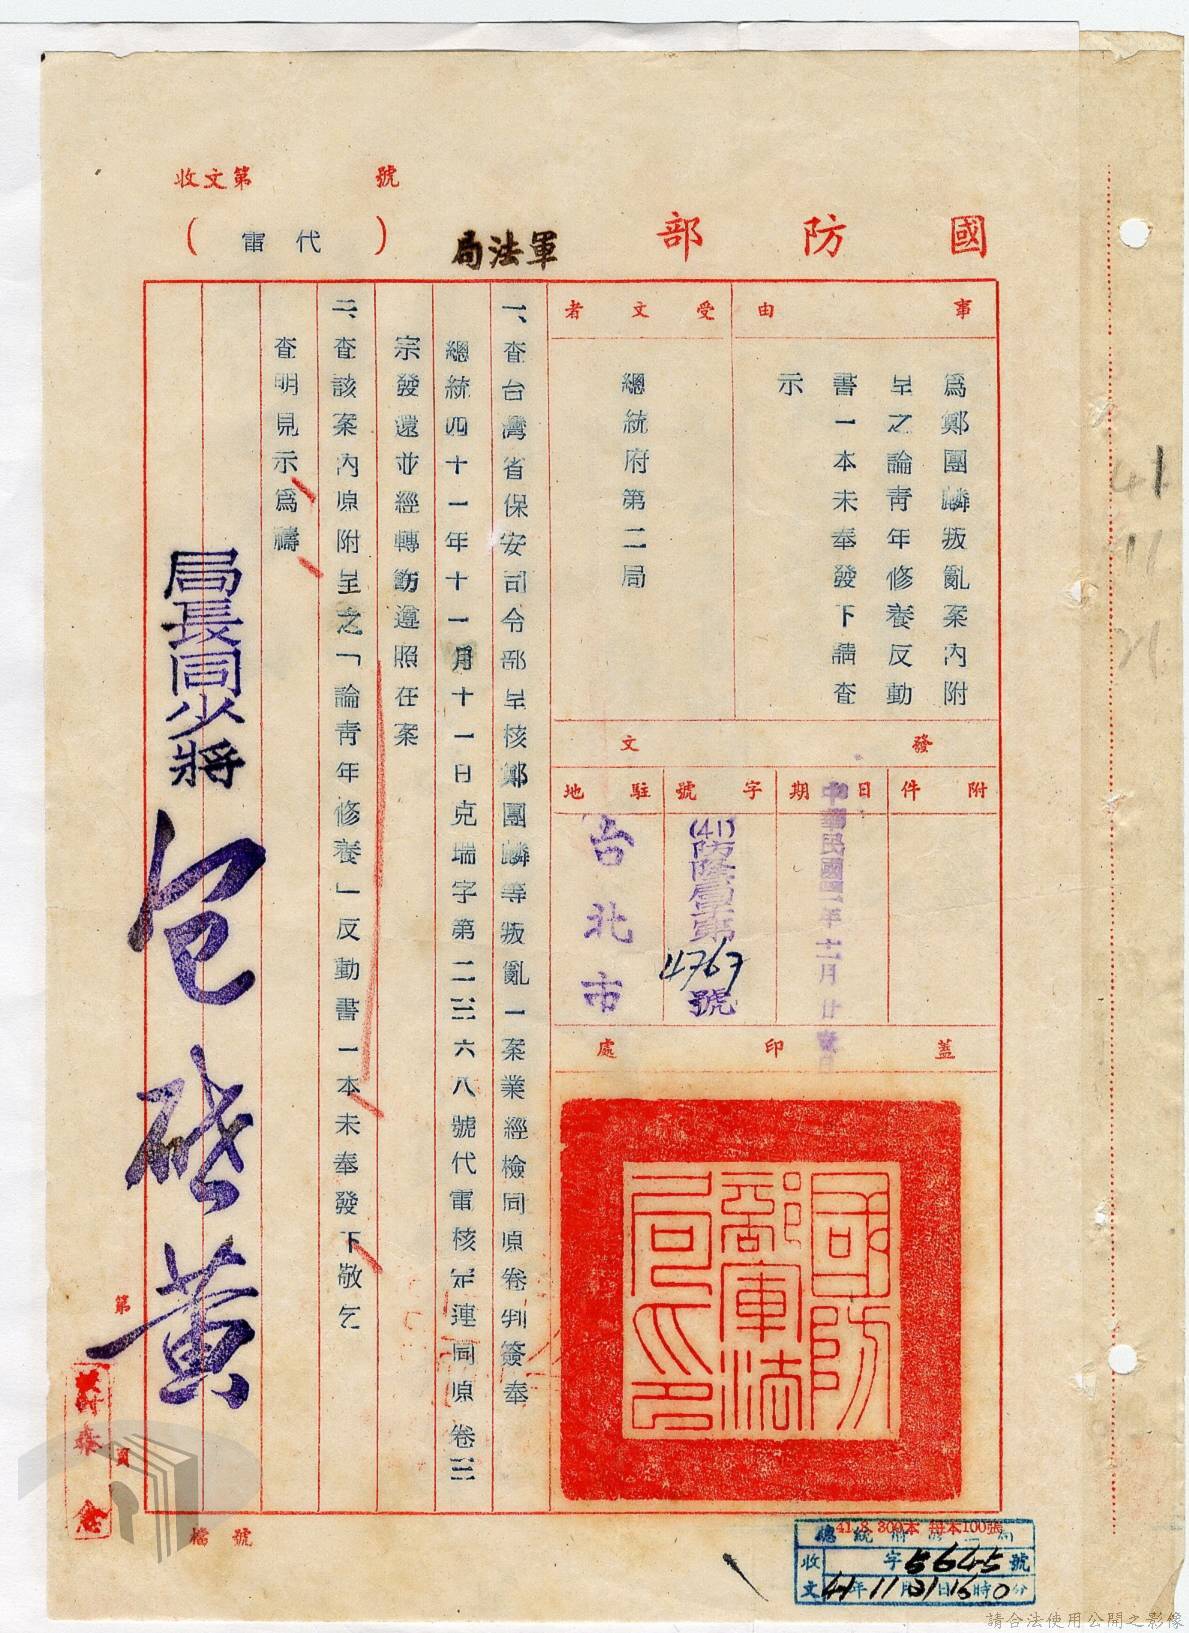 收文第　　　號
國防部軍法局（代電）
事由
為鄭團麟叛亂案內附
呈之論青年修養反動
書一本未奉發下請查
示
受文者
總統府第二局
發文
附件
日期
中華民國四一年十一月廿
字號
(41)防隆局字第
4767
號
駐地
台北市
蓋印處
國防部軍法局印
一、查台灣省保安司令部呈核鄭團麟等叛亂一案業經檢同原卷判簽奉
總統四十一年十一月十一日克瑞字第二三六八號代電核定連同原卷三
宗發還並經轉飭遵照在案
二、查該案內原附呈之「論青年修養」反動書一本未奉發下敬乞
查明見示為禱
局長同少將
包啟黃
第　頁
檔號
41.8.300本 每本100張
總統府第二局
收文
字5645號
41年11月21日16時0分
41
11
21
請合法使用公開之影像